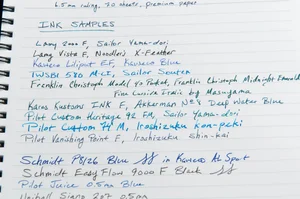 6.5mm ruling, 70 sheets, premium paper
INK SAMPLES
Lamy 2000 F, Sailor Yama-dori
Lamy Vista F, Noodler's X-Feather
Kaweco Liliput EF, Kaweco Blue
TWSBI 580 M CI, Sailor Souten
Franklin Christoph Model 40 Pocket, Franklin Christoph Midnight Emerald
Fine Cursive Italic by Masuyama
Karas Kustoms INK F, Akkerman Nº 5 Deep Water Blue
Pilot Custom Heritage 92 FM, Sailor Yama-dori
Pilot Custom 74 M, Iroshizuku Kon-peki
Pilot Vanishing Point F, Iroshizuku Shin-kai
Schmidt P8126 Blue in Kaweco AL Sport
Schmidt Easy Flow 9000 F Black
Pilot Juice 0.5mm Blue
Uniball Signo 207 0.5mm